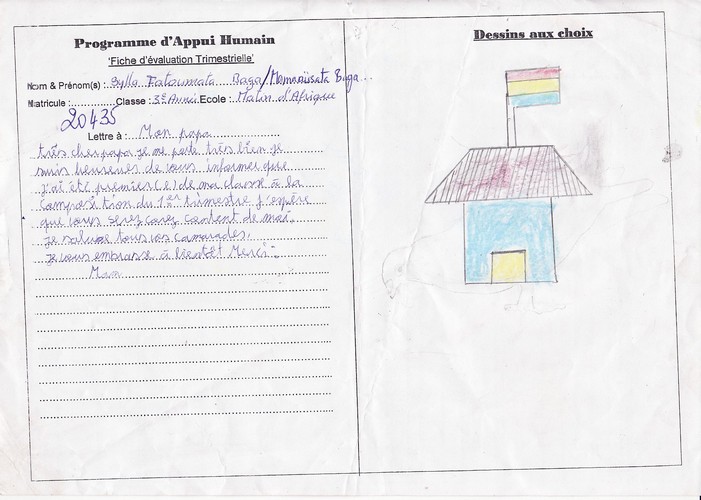 Programme d'Appui Humain
'Fiche d'évaluation Trimestrielle'
Nom & Prénom(s) : Sylla Fatoumata Baga/Mamaïssata Baga...
Matricule : Classe : 3e Anné Ecole : Matin d'Afrique
20435
Lettre à : Mon papa
très cher papa je me porte très bien je
suis heureuse de vous informer que
j'ai été premier(e) de ma classe à la
composition du 1er trimestre j'espère
que vous serez content de moi.
je salue tous vos camarades,
je vous embrasse à bientôt Merci.
Dessins aux choix